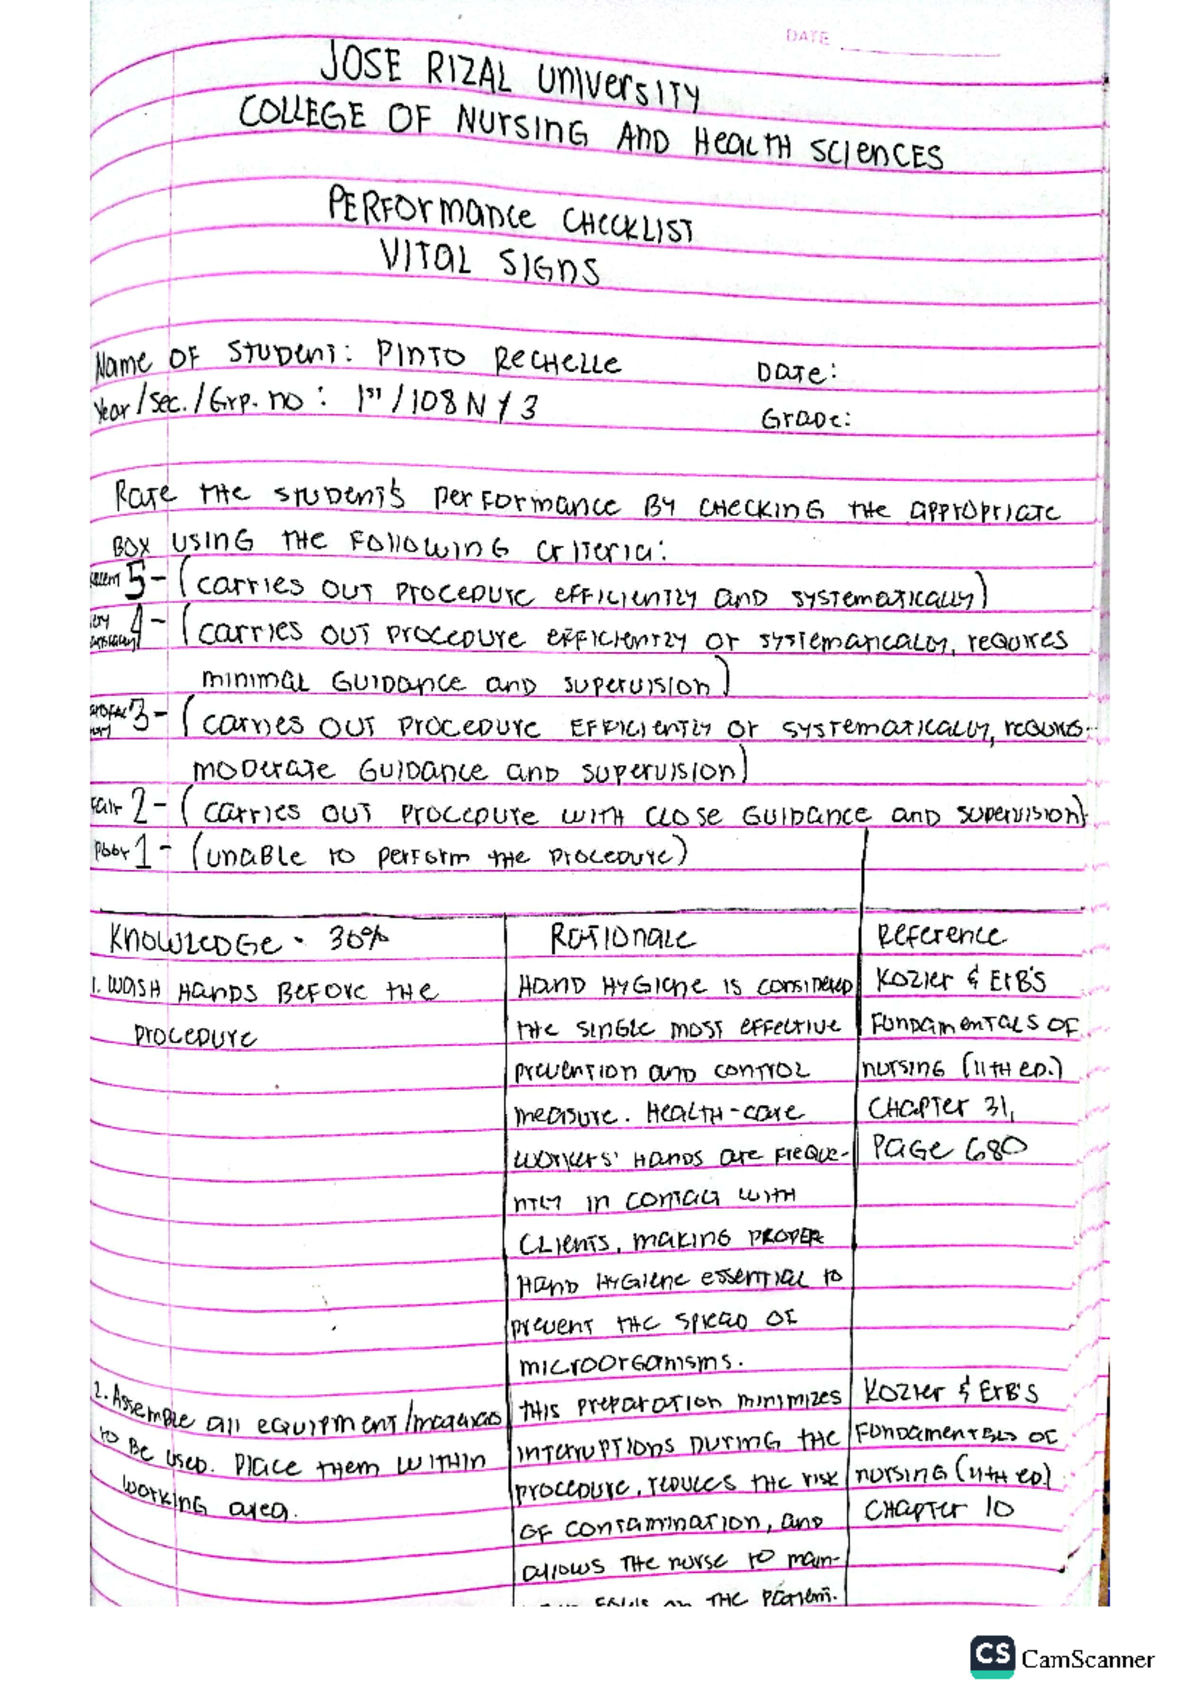 DATE
JOSE RIZAL University
COLLEGE OF NURSING AND HEALTH SCIENCES
PERFORMANCE CHECKLIST
VITAL SIGNS
Name OF STUDENT: PINTO RECHELLE
DATE:
Year/Sec./Grp. no: 1ST/108N/3
GRADE:
RATE THE STUDENT'S PERFORMANCE BY CHECKING THE APPROPRIATE
BOX USING THE FOLLOWING CRITERIA:
5- (CARRIES OUT PROCEDURE EFFICIENTLY AND SYSTEMATICALLY)
4- (CARRIES OUT PROCEDURE EFFICIENTLY OR SYSTEMATICALLY, REQUIRES
MINIMAL GUIDANCE AND SUPERVISION)
3- (CARRIES OUT PROCEDURE EFFICIENTLY OR SYSTEMATICALLY, REQUIRES
MODERATE GUIDANCE AND SUPERVISION)
FAIR 2- (CARRIES OUT PROCEDURE WITH CLOSE GUIDANCE AND SUPERVISION)
POOR 1- (UNABLE TO PERFORM THE PROCEDURE)
KNOWLEDGE - 30%
1. WASH HANDS BEFORE THE
PROCEDURE
2. Assemble all equipment/
to be used. Place them within
working area.
RATIONALE
HAND HYGIENE IS CONSIDERED
THE SINGLE MOST EFFECTIVE
PREVENTION AND CONTROL
MEASURE. HEALTH-CARE
WORKERS' HANDS ARE FREQUE-
NTLY IN CONTACT WITH
CLIENTS, MAKING PROPER
HAND HYGIENE ESSENTIAL TO
PREVENT THE SPREAD OF
MICROORGANISMS.
THIS PREPARATION MINIMIZES
INTERRUPTIONS DURING THE
PROCEDURE, REDUCES THE RISK
OF CONTAMINATION, AND
ALLOWS THE NURSE TO MAIN-
THE PATIENT.
REFERENCE
KOZIER & ERB'S
FUNDAMENTALS OF
NURSING (11TH ED.)
CHAPTER 31,
PAGE 680
KOZIER & ERB'S
FUNDAMENTALS OF
NURSING (11TH ED.)
CHAPTER 10
CS CamScanner